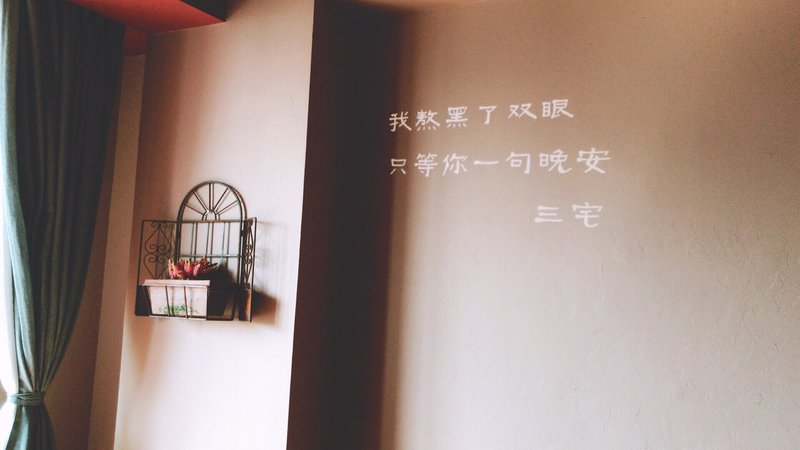 我熬黑了双眼
只等你一句晚安
三宅